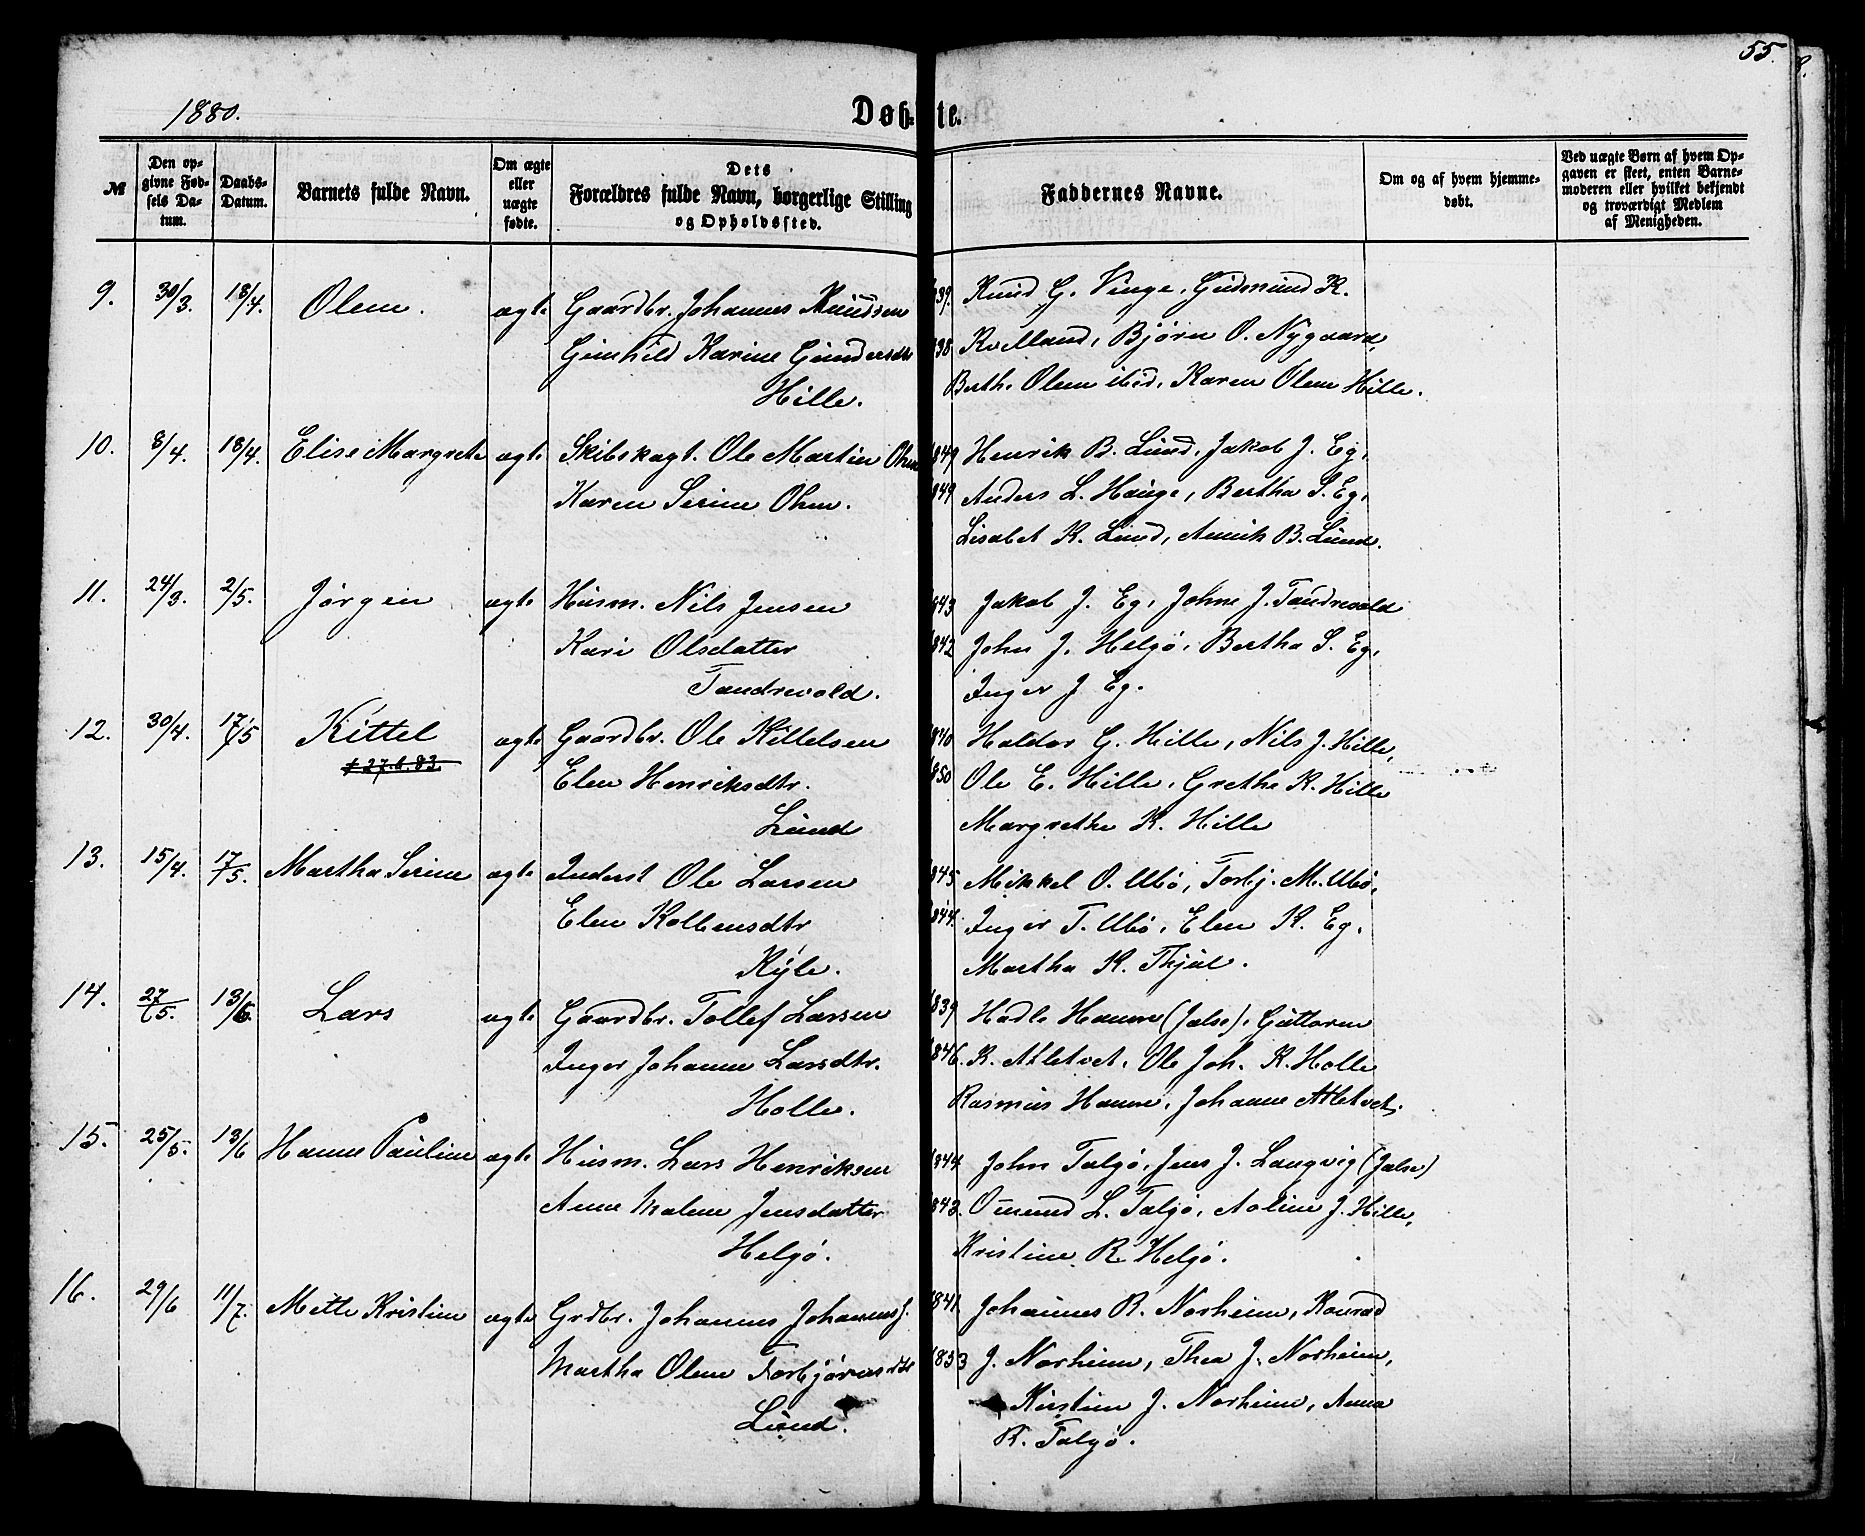 55.
1880.
Døbte.
№
Den opgivne Fødsels Datum.
Daabs-Datum.
Barnets fulde Navn.
Om ægte eller uægte fødte.
Dets Forældres fulde Navn, borgerlige Stilling og Opholdssted.
Faddernes Navne.
Om og af hvem hjemmedøbt.
Ved uægte Børn af hvem Opgaven er skeet, enten Barnemoderen eller hvilket bekjendt og troværdigt Medlem af Menigheden.
9. 30/3. 18/4. Olene. ægte Gaardbr. Johannes Knudsen 839. Knud G. Vinge, Gudmund K.
Gunhild Karine Gundersdtr 838 Kvelland, Bjørn O. Nygaard,
Hille. Berthe Olene ibid, Karen Olene Hille.
10. 8/4. 18/4. Elise Margrete ægte Skibskapt. Ole Martin Ohm 849 Henrik B. Lund, Jakob J. Eg,
Karen Serine Ohm. 849 Anders L. Hauge, Bertha S. Eg,
Lisabet K. Lund, Annik B. Lund.
11. 24/3. 2/5. Jørgen ægte Husm. Nils Jensen 843 Jakob J. Eg, Johne J. Tandrevold
Kari Olsdatter 842 John J. Helgø, Bertha S. Eg,
Tandrevold. Inger J Eg.
12. 30/4. 17/5 Kittel ægte Gaardbr. Ole Kittelsen 840 Haldor G. Hille, Nils J. Hille,
† 27.6.83. Elen Henriksdtr. 1850 Ole E. Hille, Grethe K. Hille
Lund Margrethe K. Hille
13. 15/4. 17/5. Martha Serine ægte Inderst Ole Larsen 1845 Mikkel O. Ubø, Torbj. M. Ubø,
Elen Kolbensdtr 1844. Inger T. Ubø, Elen K. Eg,
Kyle. Martha K. Thjul.
14. 27/5. 13/6. Lars ægte Gaardbr. Tollef Larsen 1839 Hadle Hamre (Jelse), Guttorm
Inger Johanne Larsdtr. 1846. K. Atletvet, Ole Joh. K. Holle
Holle. Rasmus Hamre, Johanne Atletvet,
15. 25/5. 13/6 Hanne Pauline ægte Husm. Lars Henriksen 1844 John Talgø, Jens J. Langvig (Jelse)
Anne Malene Jensdatter 1843. Omund L. Talgø, Aoline J. Hille,
Helgø. Kristine R. Helgø.
16. 29/6 11/7. Mette Kristine ægte Grdbr. Johannes Johannesj. 1841. Johannes R. Norheim, Konrad
Martha Olene Torbjørnsdtr 1853 J. Norheim, Thea J. Norheim,
Lund. Kirstine J. Norheim, Anna
R. Talgø.